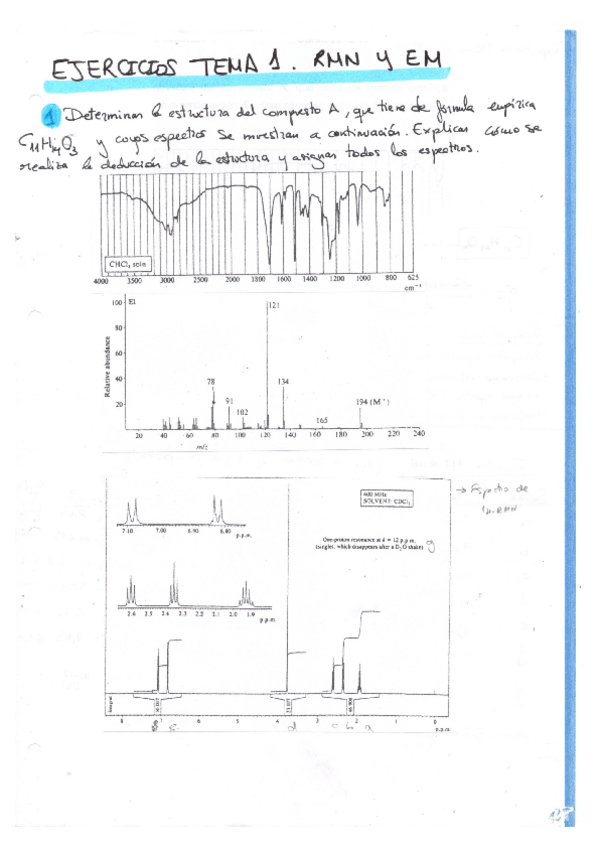 EJERCICIOS TEMA 1. RMN Y EM
1 Determinar la estructura del compuesto A, que tiene de fórmula empírica
C11H14O3 y cuyos espectros se muestran a continuación. Explicar cómo se
realiza la deducción de la estructura y asignar todos los espectros.
CHCl3 soln
4000 3500 3000 2500 2000 1800 1600 1400 1200 1000 800 625
cm-1
100 EI
121
80
Relative abundance
60
40
78
134
91
20
102
165
194 (M+)
20 40 60 80 100 120 140 160 180 200 220 240
m/z
400 MHz
SOLVENT: CDCl3
→ Espectro de
1H-RMN
7.10 7.00 6.90 6.80
p.p.m.
One-proton resonance at δ = 12 p.p.m.
(singlet, which disappears after a D2O shake) g
2.6 2.5 2.4 2.3 2.2 2.1 2.0 1.9
p.p.m.
Integral
8 7 6 5 4 3 2 1 0
p.p.m.
e d c b a